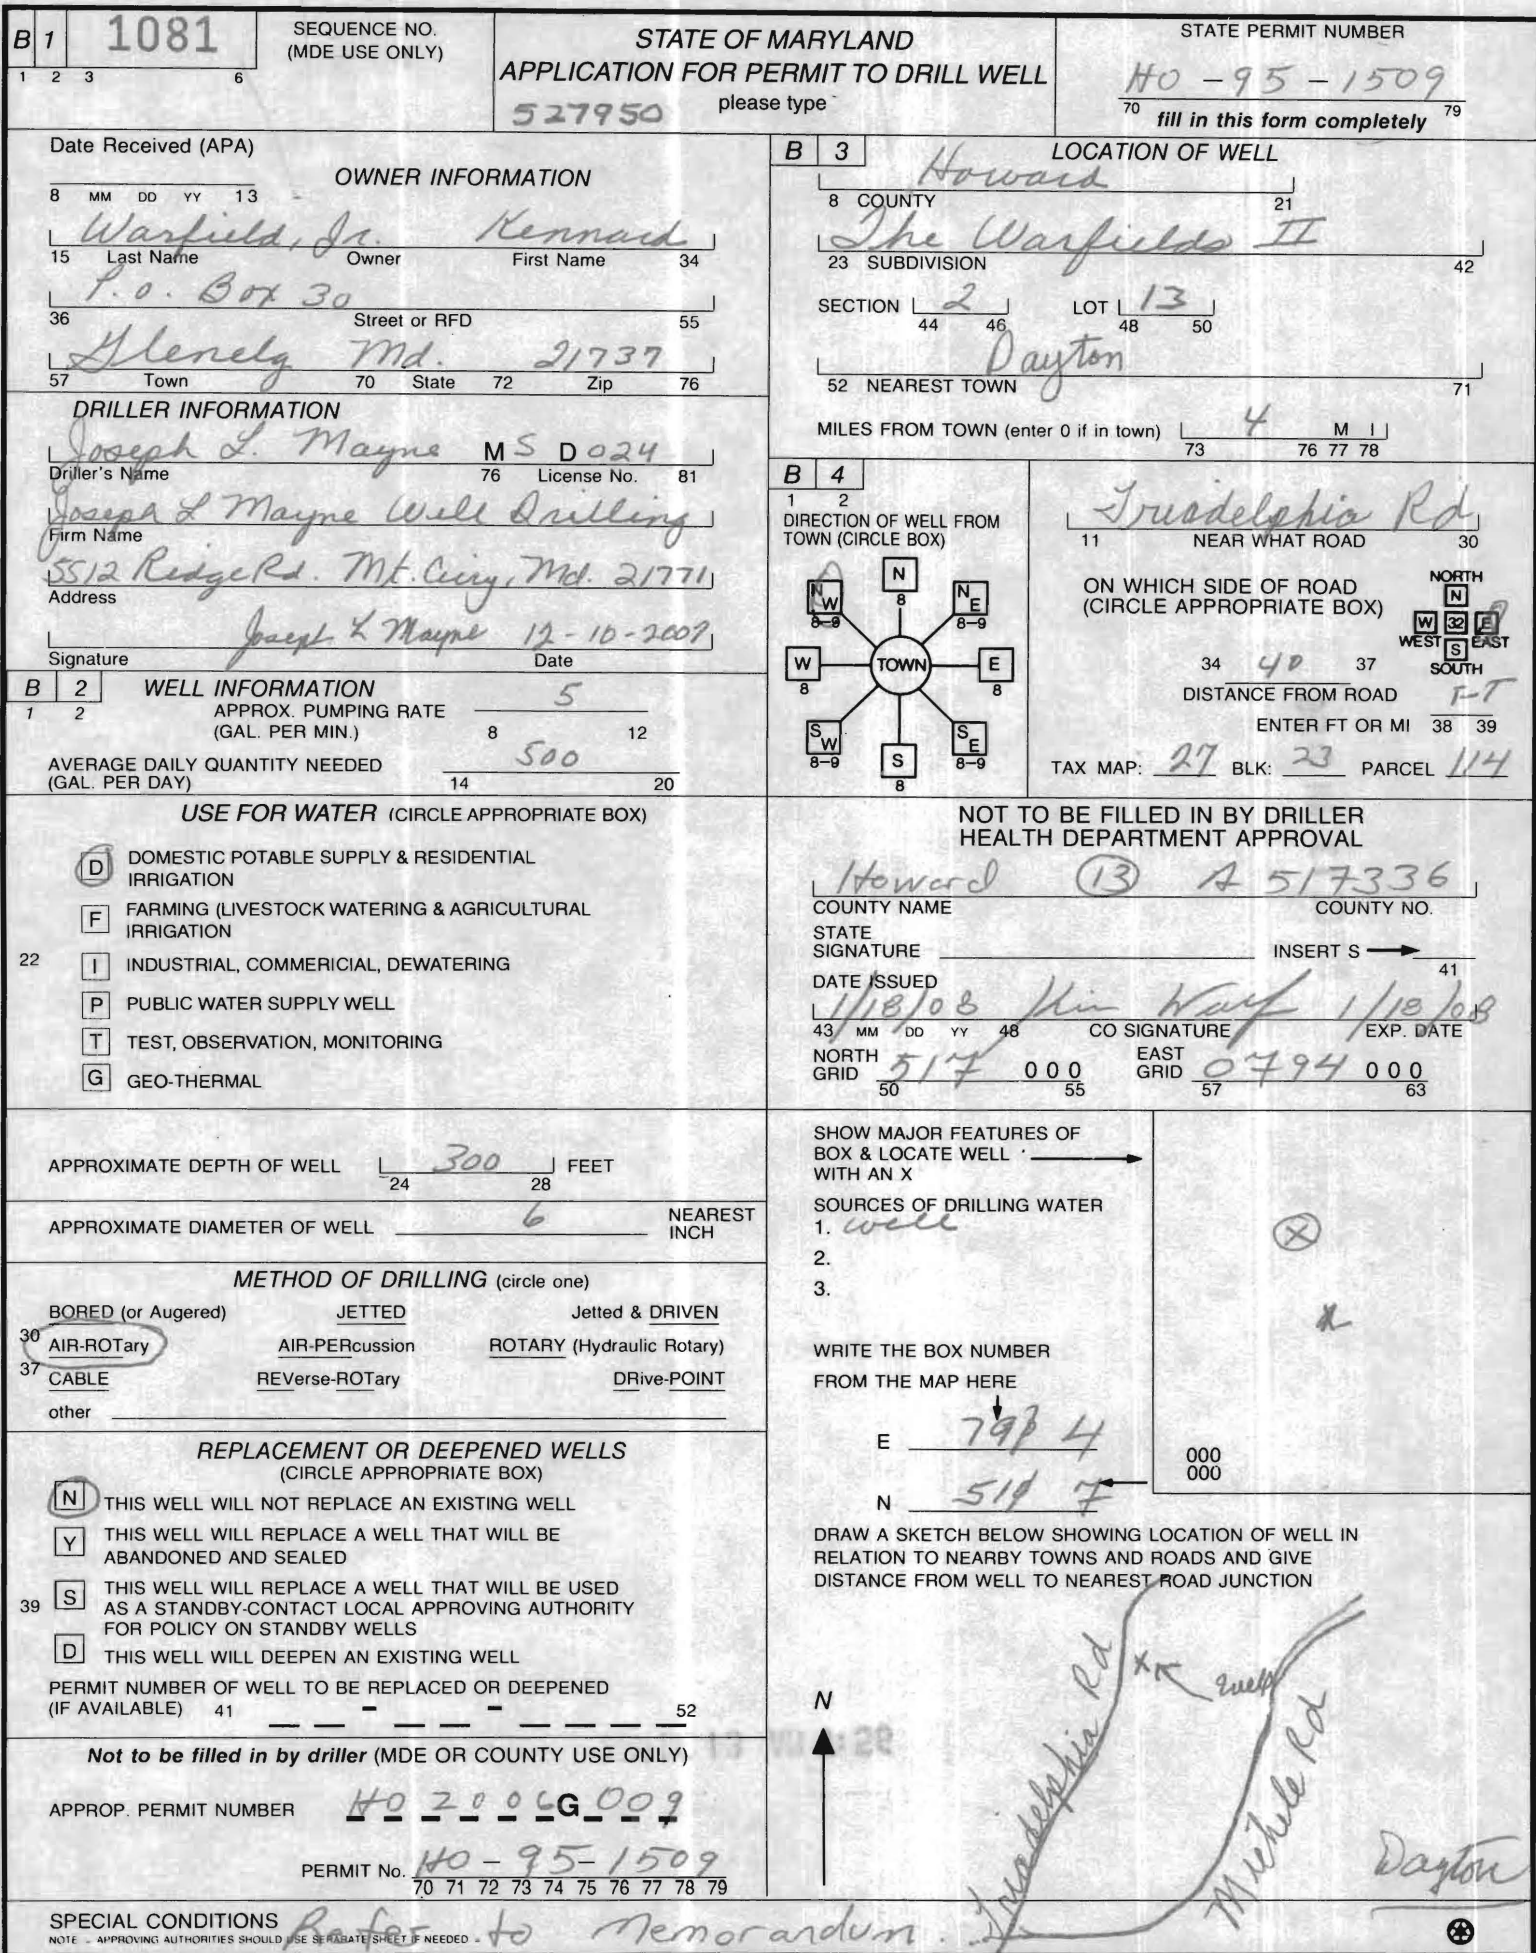 B 1 1081
1 2 3 6
SEQUENCE NO.
(MDE USE ONLY)
STATE OF MARYLAND
APPLICATION FOR PERMIT TO DRILL WELL
527950 please type
STATE PERMIT NUMBER
HO - 95 - 1509
70 fill in this form completely 79
Date Received (APA)
8 MM DD YY 13
OWNER INFORMATION
Warfield, Jr. Kennard
15 Last Name Owner First Name 34
P.O. Box 30
36 Street or RFD 55
Glenelg Md. 21737
57 Town 70 State 72 Zip 76
DRILLER INFORMATION
Joseph L. Mayne M S D 024
Driller's Name 76 License No. 81
Joseph L Mayne Well Drilling
Firm Name
5512 Ridge Rd. Mt. Airy, Md. 21771
Address
Joseph L Mayne 12-10-2007
Signature Date
B 2 WELL INFORMATION
1 2
APPROX. PUMPING RATE 5
(GAL. PER MIN.) 8 12
AVERAGE DAILY QUANTITY NEEDED 500
(GAL. PER DAY) 14 20
USE FOR WATER (CIRCLE APPROPRIATE BOX)
D DOMESTIC POTABLE SUPPLY & RESIDENTIAL
IRRIGATION
F FARMING (LIVESTOCK WATERING & AGRICULTURAL
IRRIGATION
22 I INDUSTRIAL, COMMERICIAL, DEWATERING
P PUBLIC WATER SUPPLY WELL
T TEST, OBSERVATION, MONITORING
G GEO-THERMAL
APPROXIMATE DEPTH OF WELL 300 FEET
24 28
APPROXIMATE DIAMETER OF WELL 6 NEAREST
INCH
METHOD OF DRILLING (circle one)
BORED (or Augered) JETTED Jetted & DRIVEN
30 AIR-ROTary AIR-PERcussion ROTARY (Hydraulic Rotary)
37 CABLE REVerse-ROTary DRive-POINT
other
REPLACEMENT OR DEEPENED WELLS
(CIRCLE APPROPRIATE BOX)
N THIS WELL WILL NOT REPLACE AN EXISTING WELL
Y THIS WELL WILL REPLACE A WELL THAT WILL BE
ABANDONED AND SEALED
39 S THIS WELL WILL REPLACE A WELL THAT WILL BE USED
AS A STANDBY-CONTACT LOCAL APPROVING AUTHORITY
FOR POLICY ON STANDBY WELLS
D THIS WELL WILL DEEPEN AN EXISTING WELL
PERMIT NUMBER OF WELL TO BE REPLACED OR DEEPENED
(IF AVAILABLE) 41 - - 52
Not to be filled in by driller (MDE OR COUNTY USE ONLY)
APPROP. PERMIT NUMBER HO 2006 G 009
PERMIT No. HO - 95 - 1509
70 71 72 73 74 75 76 77 78 79
SPECIAL CONDITIONS Refer to Memorandum.
NOTE - APPROVING AUTHORITIES SHOULD USE SEPARATE SHEET IF NEEDED -
B 3 LOCATION OF WELL
Howard
8 COUNTY 21
The Warfields II
23 SUBDIVISION 42
SECTION 2 LOT 13
44 46 48 50
Dayton
52 NEAREST TOWN 71
MILES FROM TOWN (enter 0 if in town) 4 M I
73 76 77 78
B 4
1 2
DIRECTION OF WELL FROM
TOWN (CIRCLE BOX)
N
8
NW NE
8-9 8-9
W TOWN E
8 8
SW SE
8-9 8-9
S
8
Triadelphia Rd
11 NEAR WHAT ROAD 30
ON WHICH SIDE OF ROAD
(CIRCLE APPROPRIATE BOX)
NORTH
N
W 32 E
WEST S EAST
SOUTH
34 40 37
DISTANCE FROM ROAD FT
ENTER FT OR MI 38 39
TAX MAP: 27 BLK: 23 PARCEL 114
NOT TO BE FILLED IN BY DRILLER
HEALTH DEPARTMENT APPROVAL
Howard 13 A 517336
COUNTY NAME COUNTY NO.
STATE
SIGNATURE INSERT S
41
DATE ISSUED
1/18/08 1/18/08
43 MM DD YY 48 CO SIGNATURE EXP. DATE
NORTH
GRID 517 000
50 55
EAST
GRID 0794 000
57 63
SHOW MAJOR FEATURES OF
BOX & LOCATE WELL
WITH AN X
SOURCES OF DRILLING WATER
1. well
2.
3.
X
x
WRITE THE BOX NUMBER
FROM THE MAP HERE
E 79 4
N 51 7
000
000
DRAW A SKETCH BELOW SHOWING LOCATION OF WELL IN
RELATION TO NEARBY TOWNS AND ROADS AND GIVE
DISTANCE FROM WELL TO NEAREST ROAD JUNCTION
N
Triadelphia Rd
x well
Michele Rd
Dayton